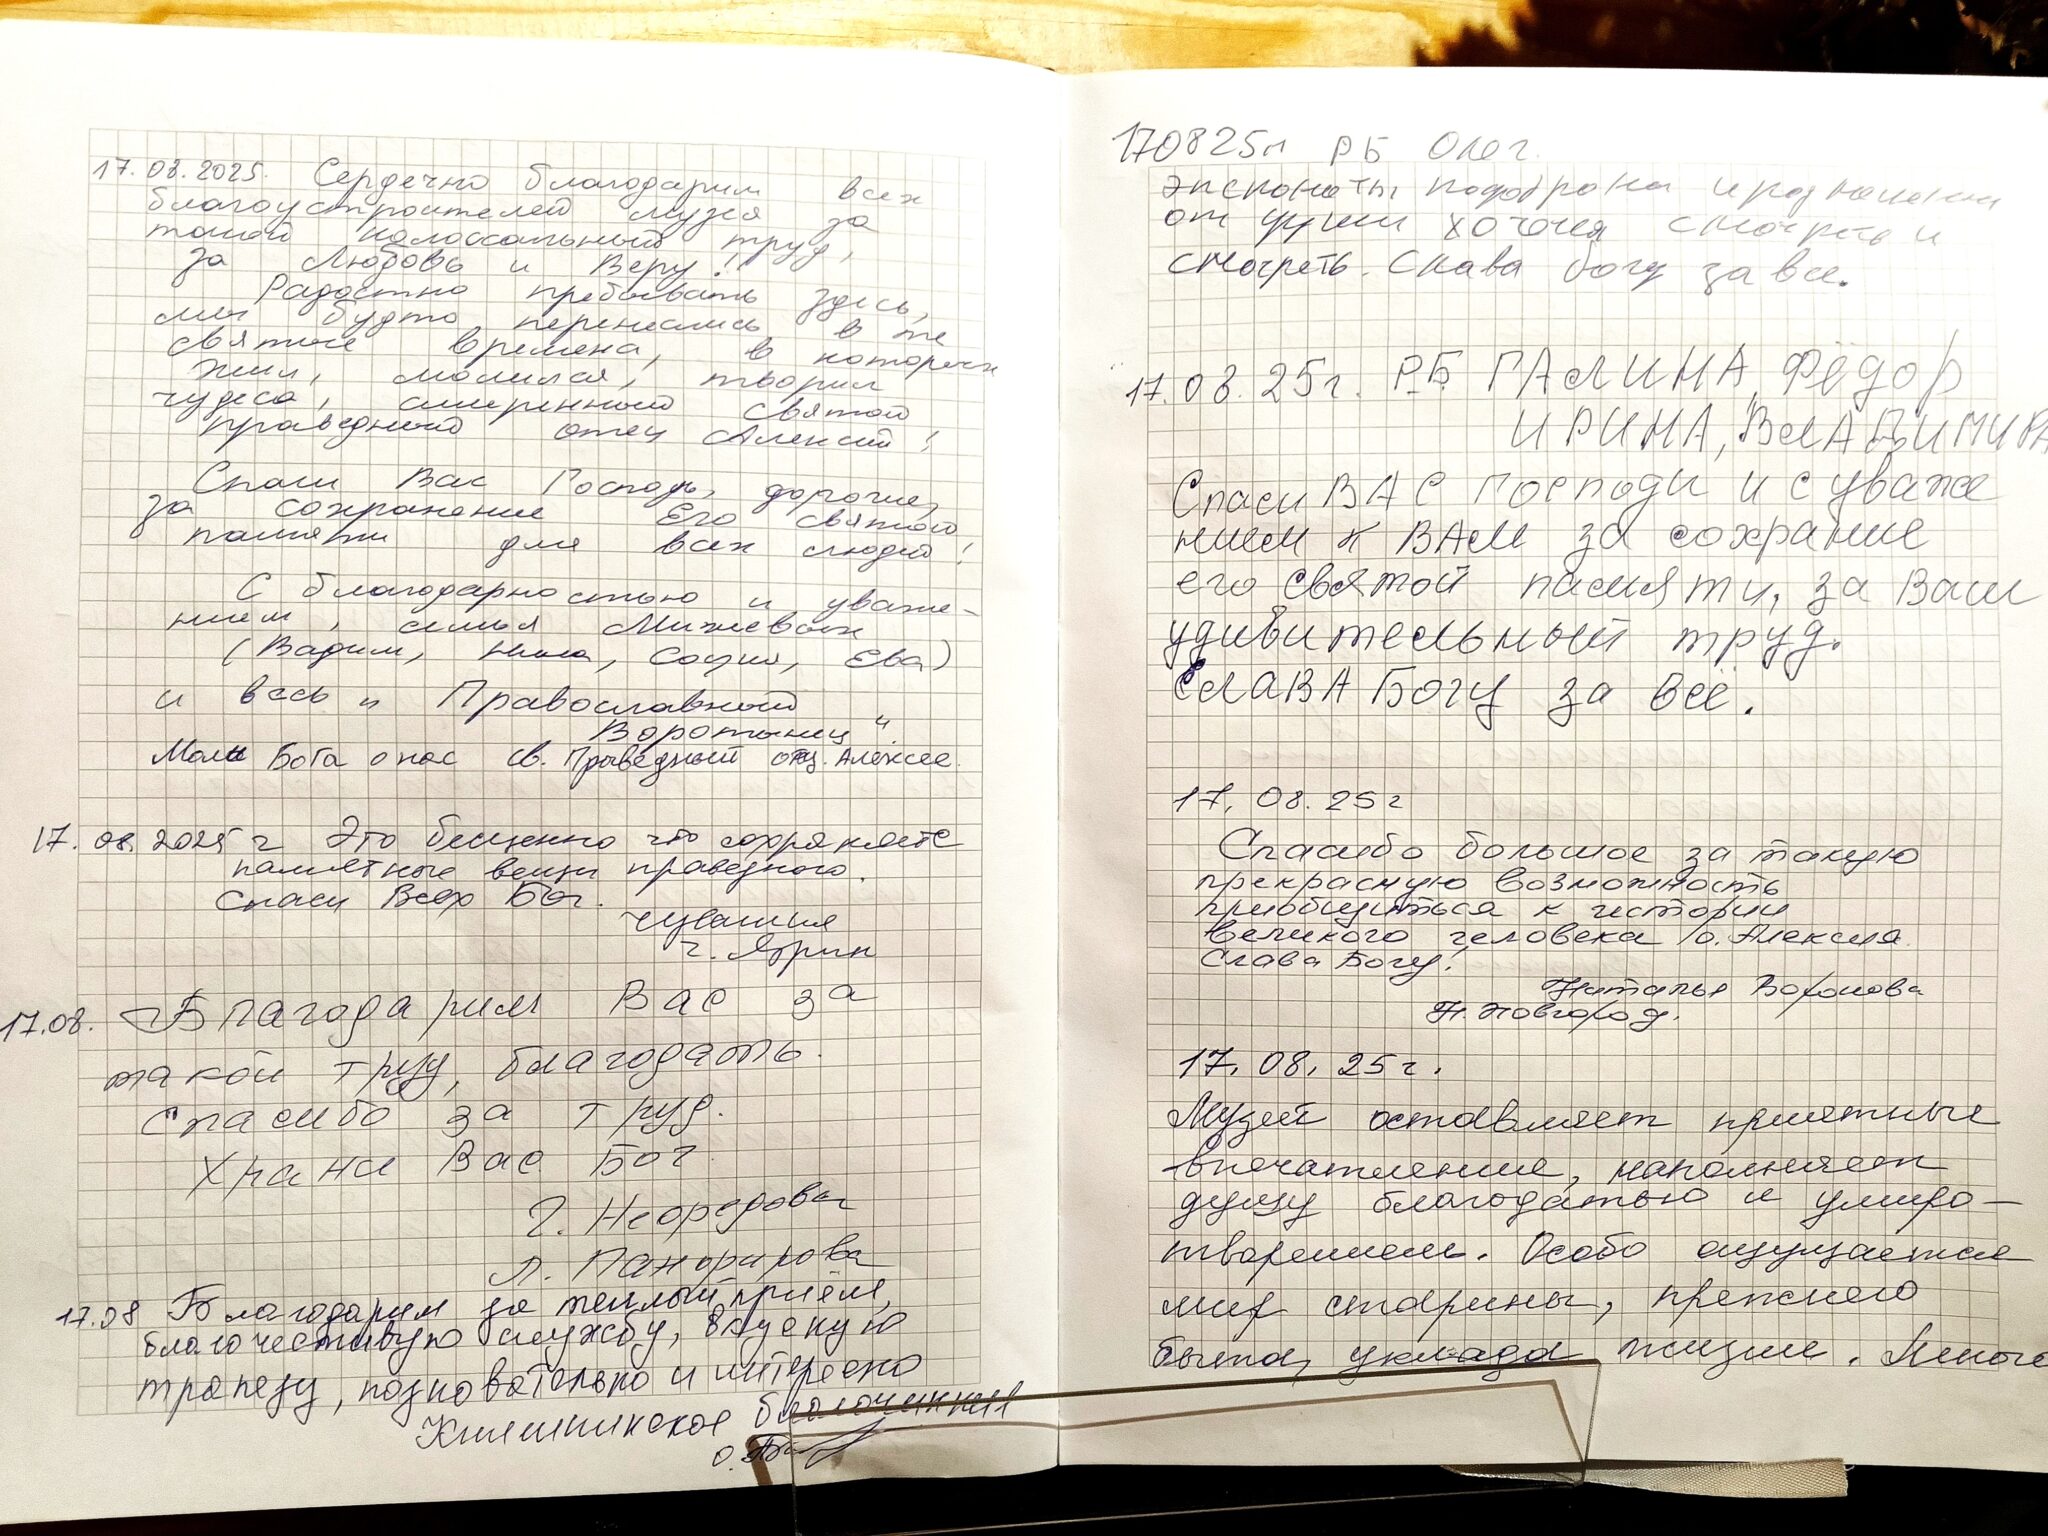 17.08.2025. Сердечно благодарим всех
благоустроителей музея за
такой колоссальный труд,
за Любовь и Веру!
Радостно пребывать здесь,
мы будто перенеслись в те
святые времена, в которых
жил, молился, творил
чудеса, смиренный святой
праведный отец Алексий!
Спаси Вас Господь, дорогие,
за сохранение Его святой
памяти для всех людей!
С благодарностью и уваже-
нием, семья
(Вадим, Нина, София, Ева)
и весь "Православный
Воротынец".
Моли Бога о нас св. Праведный отц. Алексее.
17.08.2025 г Это бесценно что сохраняете
памятные вещи праведного.
Спаси Всех Бог.
Чувашия
г. Ядрин
17.08. Благодарим Вас за
такой труд, благодать.
Спасибо за труд.
Храни Вас Бог.
Л. Панфирова
17.08 Благодарим за теплый приём,
благочестивую службу, вкусную
трапезу, познавательно и интересно
благочиние
о.
170825г РБ Олег.
экспонаты подобраны и
от души хочется смотреть и
смотреть. Слава богу за все.
17.08.25г. РБ ГАЛИНА, Фёдор
ИРИНА, ВЛАДИМИРА
Спаси ВАС Господи и с уваже
нием к ВАМ за сохрание
его святой памяти, за Ваш
удивительный труд.
СЛАВА БОГУ за всё.
17.08.25г
Спасибо большое за такую
прекрасную возможность
приобщиться к истории
великого человека /о. Алексия.
Слава Богу!
Наталья Воронова
Н. Новгород.
17.08.25г.
Музей оставляет приятные
впечатление, наполняет
душу благодатью и умиро-
творением. Особо ощущается
мир старины, прежнего
быта, уклада жизни. Много